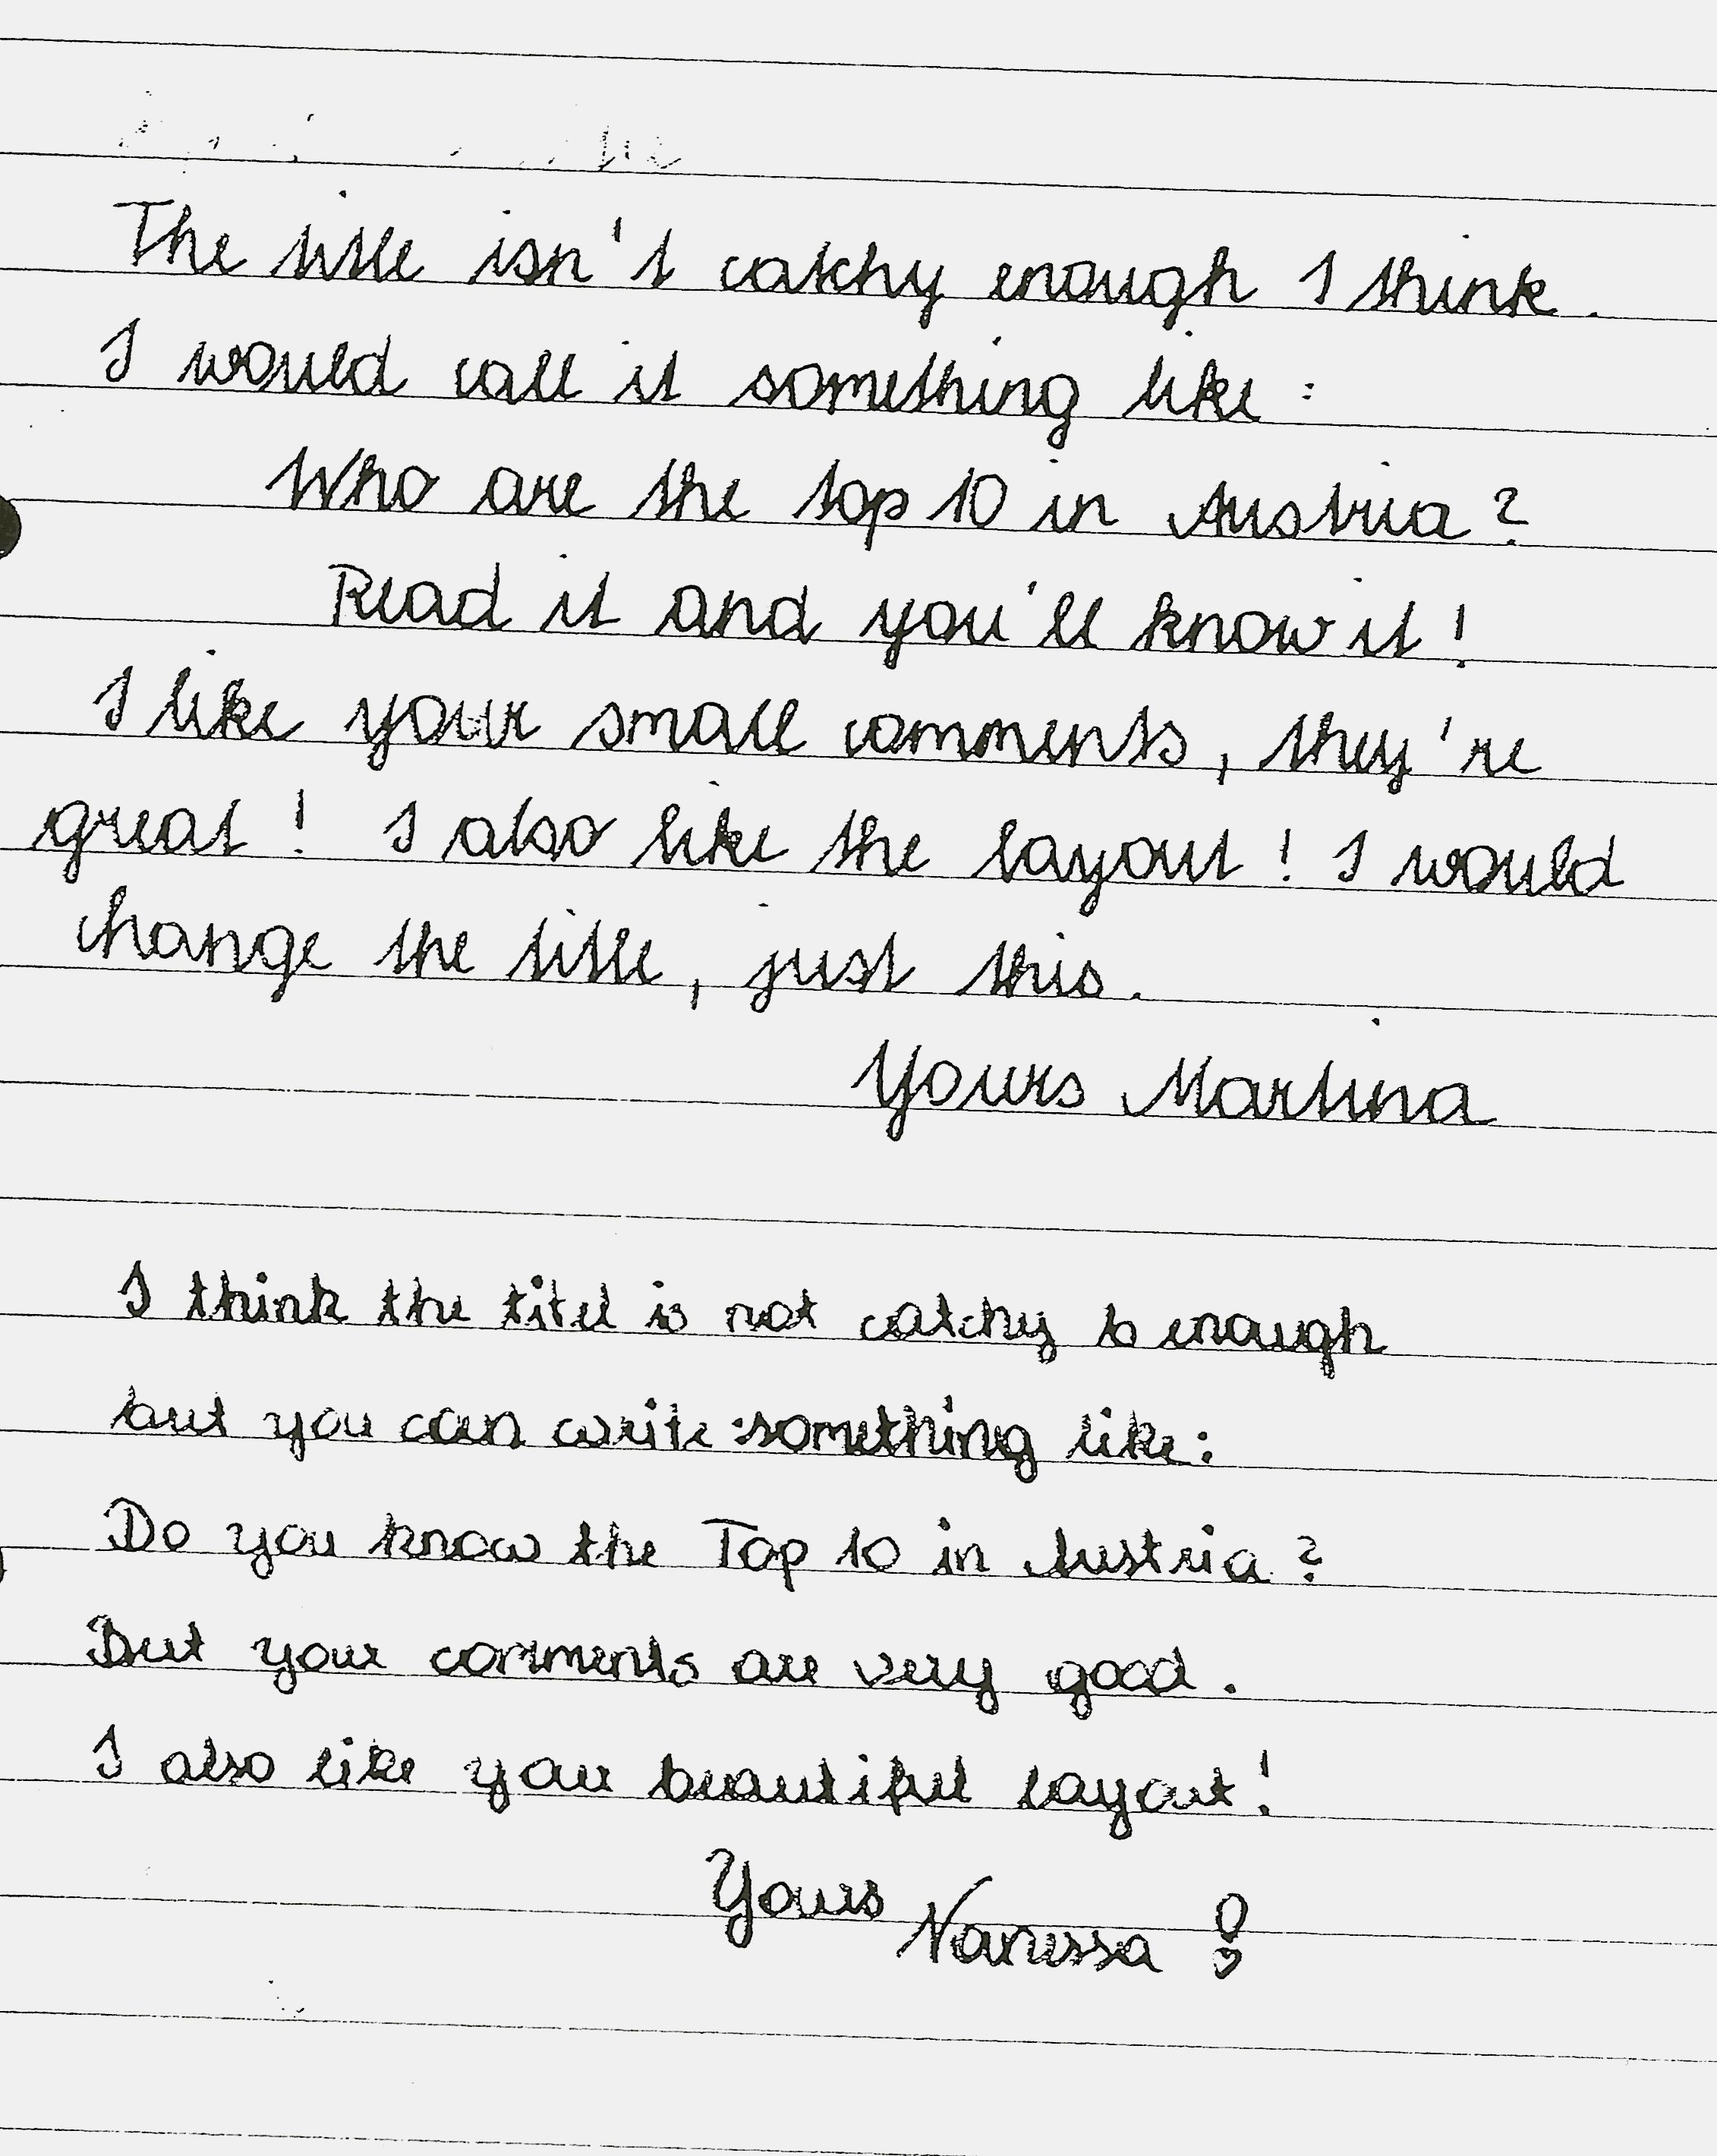 The title isn't catchy enough I think.
I would call it something like:
Who are the top 10 in Austria?
Read it and you'll know it!
I like your small comments, they're
great! I also like the layout! I would
change the title, just this.
Yours Martina
I think the titel is not catchy enough
but you can write something like:
Do you know the Top 10 in Austria?
But your comments are very good.
I also like your beautiful layout!
Yours Vanessa !